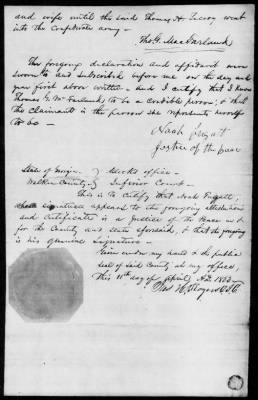 and wife until the said Thomas H. Treevy went
into the Confederate army —
Thos G. MacFarland
This foregoing declaration and affidavit were
sworn to and subscribed before me on the day and
year first above written – and I certify that I know
Thomas G. McFarland to be a credible person; & that
the Claimant is the person she represents herself
to be —
Noah
Justice of the peace
State of } Clerks office –
Walker County } Superior Court –
This is to certify that Noah
whose signature appears to the foregoing attestation
and certificate is a Justice of the Peace
for the County and state aforesaid, & that the foregoing
is his genuine signature –
Given under my hand & the public
seal of said County at my office,
This 11th day of April A.D. 1883 –
Rogers C.S.C.